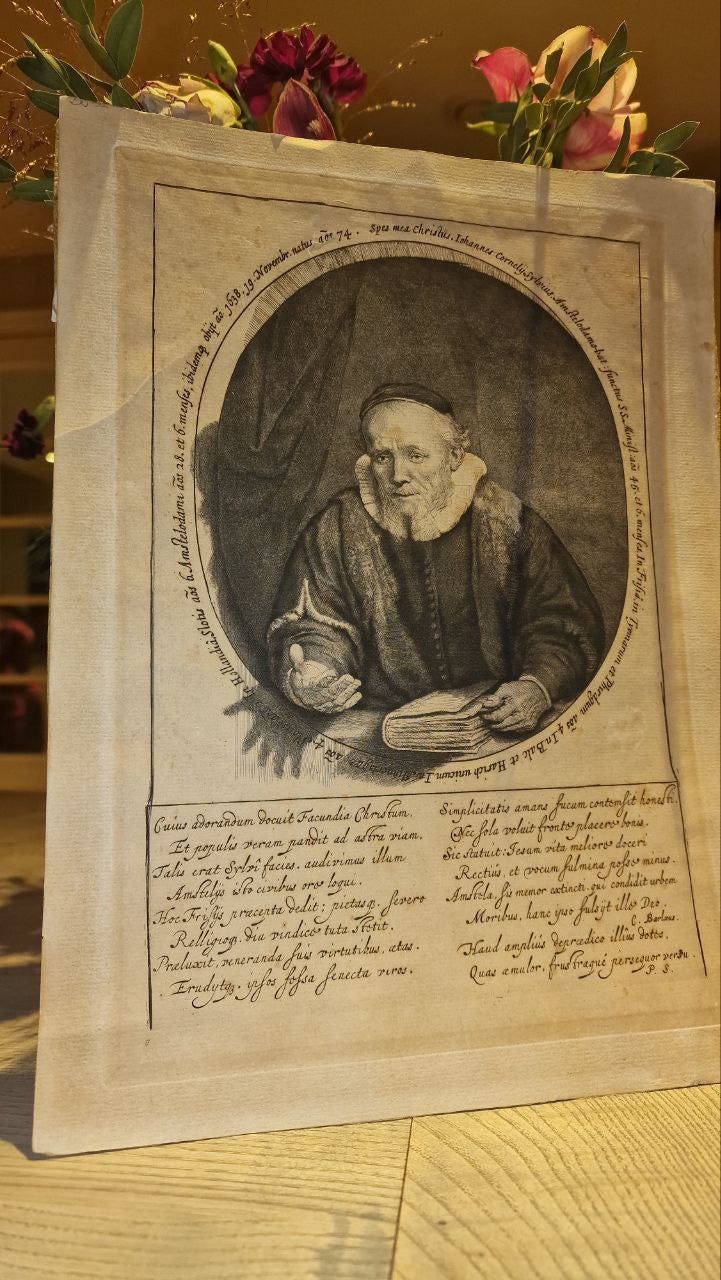 Spes mea Christus. Iohannes Cornelij Sylvius Amstelodamo-bat: functus S.S. Minist: aõs 45. et 6. menses. In Frisiâ, in Tÿemarum et Phirdgum aõs 4. In Balc et Harich unicum. In aõs 4. In Hollandiâ, Slotis aõs 6. Amstelodami aõs 28. et 6. menses, ibidemq. obijt aõ 1638. 19. Novembr. natus aõs 74.
Cuius adorandum docuit Facundia Christum,
Et populis veram pandit ad astra viam,
Talis erat Sylvî facies. audivimus illum
Amstelijs isto civibus ore loqui.
Hoc Frisijs præcepta dedit; pietasq. severo
Relligioq. diu vindice tuta stetit.
Præluxit, veneranda suis virtutibus, ætas.
Erudytq3. ipsos fessa senecta viros.
Simplicitatis amans fucum contemsit honesti,
Nec sola voluit fronte placere bonis.
Sic statuit: Jesum vita meliore doceri
Rectiùs, et vocum fulmina posse minus.
Amstela, sis memor extincti. qui condidit urbem
Moribus, hanc ipso fulsijt ille Deo.
C. Barlæus.
Haud ampliùs deprædico illius dotes,
Quas æmulor, frustraque persequor versu.
P. S.